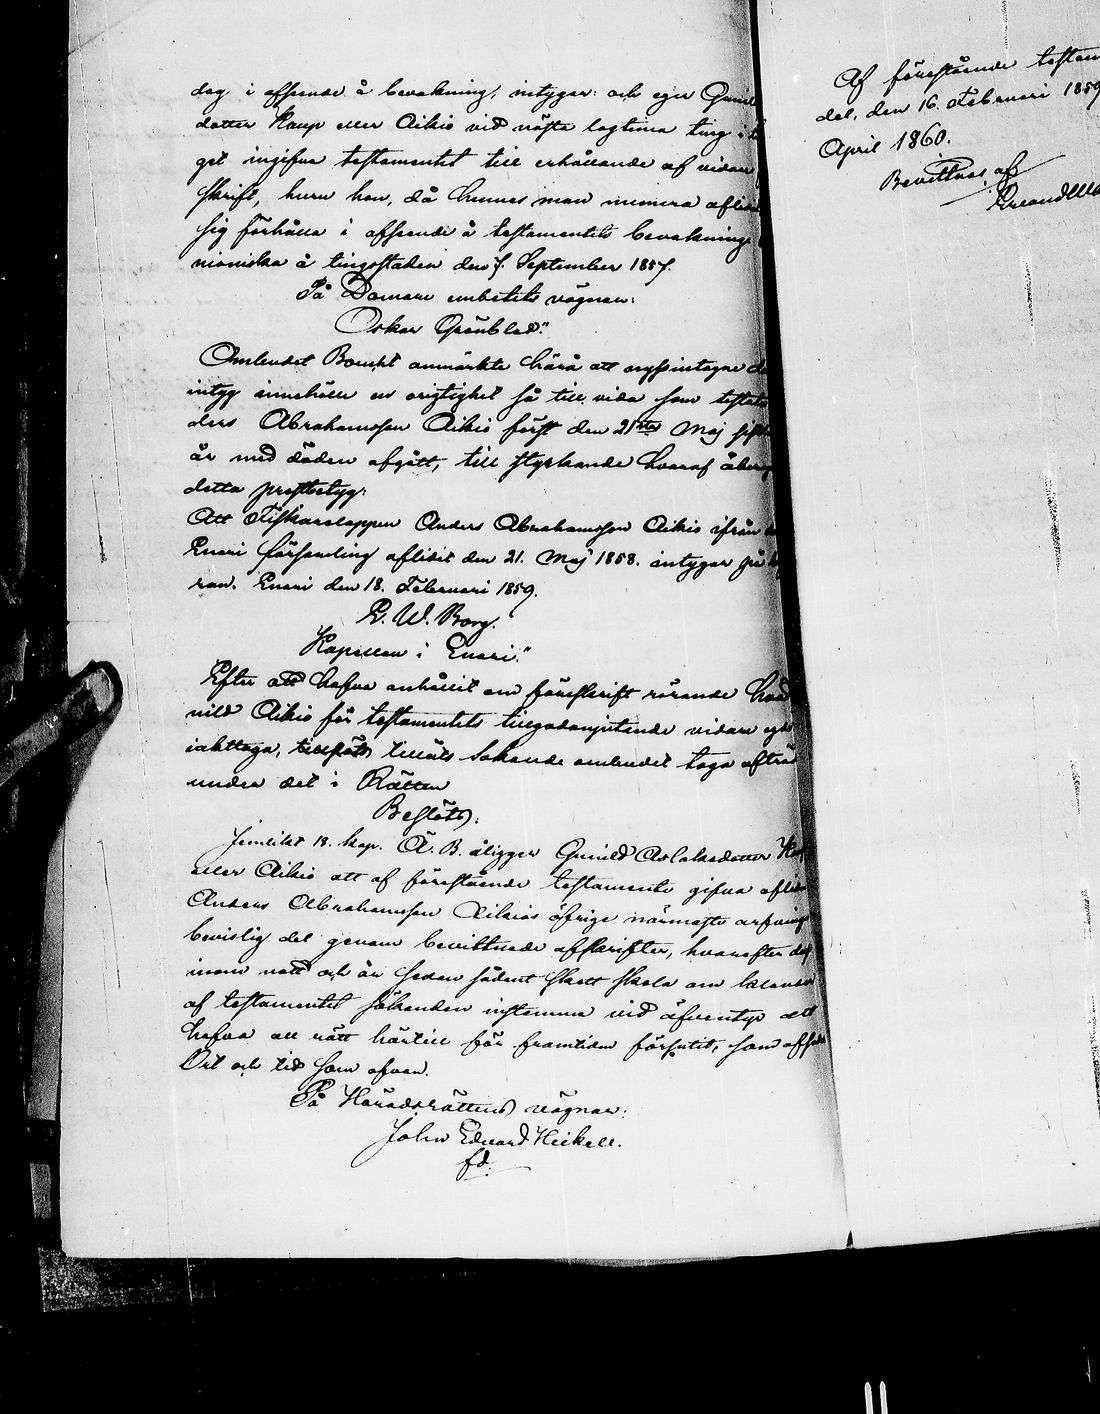 dag i afseende å bevakning, intygar: och eger Gunil
dotter Kaup eller Aikio vid nästa lagtima ting i
get ingifva testamentet till erhållande af vidare
skrift, huru hon, då hennes man numera aflid
sig förhålla i afseende å testamentets bevakning.
nioniska å tingsstaden den 7. September 1857.
På Domare embetets vägnar:
Oskar Grönblad."
Ombudet Boucht anmärkte härå att nyssintagne
intyg innehölle en origtighet så till vida som testat
ders Abrahamsson Aikio först den 21sta Maj sist
år med döden afgått, till styrkande hvaraf åbero
detta prestbetyg:
Att Fiskarelappen Anders Abrahamsson Aikio ifrån
Enari församling aflidit den 21. Maj 1858. intygar på
ran. Enari den 18. Februari 1859.
E. W. Borg.
Kapellan i Enari."
Efter att hafva anhållit om föreskrift rörande hvad
nild Aikio för testamentets tillgodonjutande vidare eger
iakttaga, tilläts sökande ombudet taga afträd
under det i Rätten
Beslöts:
Jemlikt 18. kap. Ä. B. åligger Gunild Aslaksdotter Kaup
eller Aikio att af förestående testamente gifva aflid
Anders Abrahamsson Aikios öfrige närmaste arfvinge
bevislig del genom bevittnade afskrifter, hvarefter de
inom natt och år sedan sådant skett skola om klander
af testamentet sökanden instemma vid äfventyr att
hafva all rätt härtill för framtiden förlutit, som afsade
Ort och tid som ofvan.
På Häradsrättens vägnar:
John Edvard Heikell.
fd.
Af förestående testam
del, den 16 Februari 1859
April 1860.
Bevittnas af